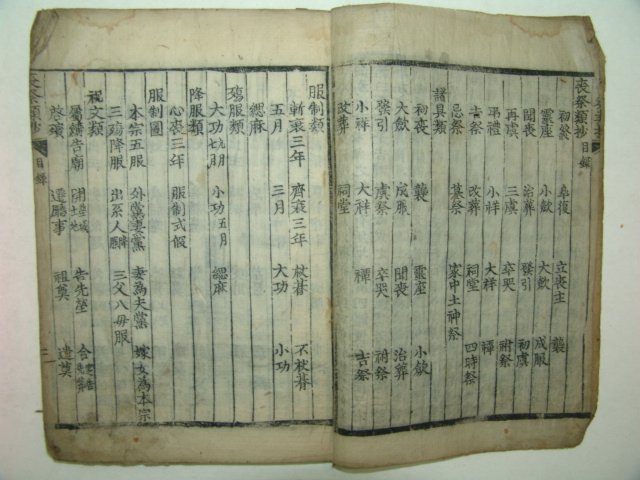 喪祭類抄目錄
初終 皐復 立喪主 襲
靈座 小斂 大斂 成服
聞喪 治葬 發引 初虞
再虞 三虞 卒哭 祔祭
弔禮 小祥 大祥 禫
吉祭 改葬 祠堂 四時祭
忌祭 墓祭 家中土神祭
諸具類
初喪 襲 靈座 小斂
大斂 成服 聞喪 治葬
發引 虞祭 卒哭 祔祭
小祥 大祥 禫 吉祭
改葬 祠堂
服制類
斬衰三年 齊衰三年 杖朞 不杖朞
五月 三月 大功 小功
緦麻
殤服類
大功九月七月 小功五月 緦麻
降服類
心喪三年 服制式假
服制圖
本宗五服 外黨妻黨 妻為夫黨 嫁女為本宗
三殤降服 出系人 三父八母服
祝文類
告廟 開塋域 告先塋
啓殯 遷廳事 祖奠 遣奠
喪祭類抄 目錄